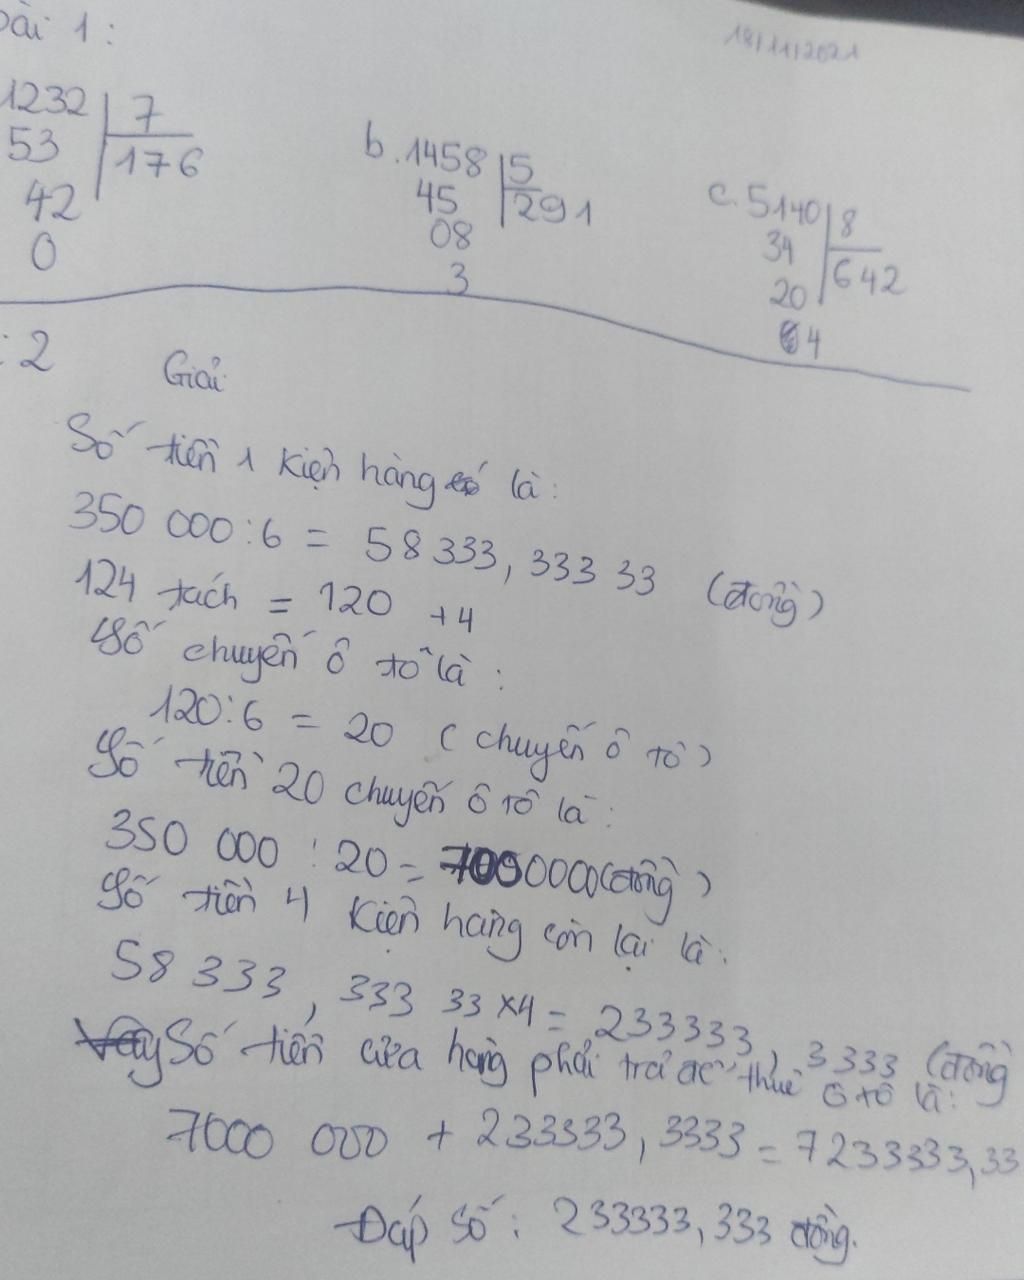 Bài 1:
18/11/2021
1232 7
53 176
42
0
b. 1458 5
45 291
08
3
c. 5140 8
34 642
20
4
: 2
Giải
Số tiền 1 kiện hàng có là:
350 000 : 6 = 58 333, 333 33 (đồng)
124 tách = 120 + 4
Số chuyến ô tô là:
120 : 6 = 20 (chuyến ô tô)
Số tiền 20 chuyến ô tô là:
350 000 : 20 = 7000000 (đồng)
Số tiền 4 kiện hàng còn lại là:
58 333, 333 33 x4 = 233333, 3333 (đồng
Số tiền cửa hàng phải trả để thuê ô tô là:
7000 000 + 233333, 3333 = 7233333,33
Đáp số: 233333, 333 đồng.